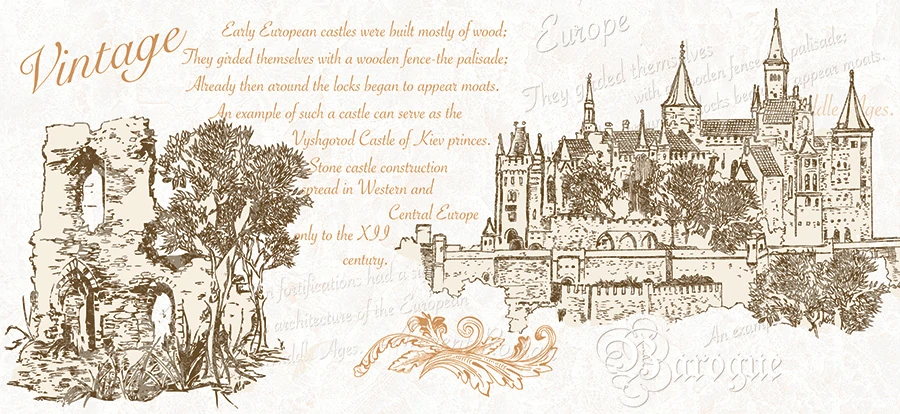 Vintage
Early European castles were built mostly of wood;
They girded themselves with a wooden fence-the palisade;
Already then around the locks began to appear moats.
An example of such a castle can serve as the
Vyshgorod Castle of Kiev princes.
Stone castle construction
spread in Western and
Central Europe
only to the XII
century.
Europe
They girded themselves
with a wooden fence the palisade;
locks began to appear moats.
Middle Ages.
fortifications had a
architecture of the European
Middle Ages.
An example
Baroque